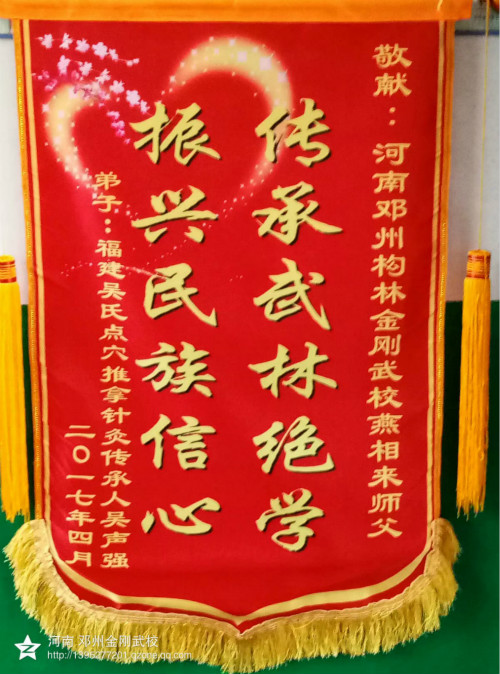 敬献：河南邓州构林金刚武校燕相来师父
传承武林绝学
振兴民族信心
弟子：福建吴氏点穴推拿针灸传承人吴声强
二〇一七年四月
河南 邓州金刚武校